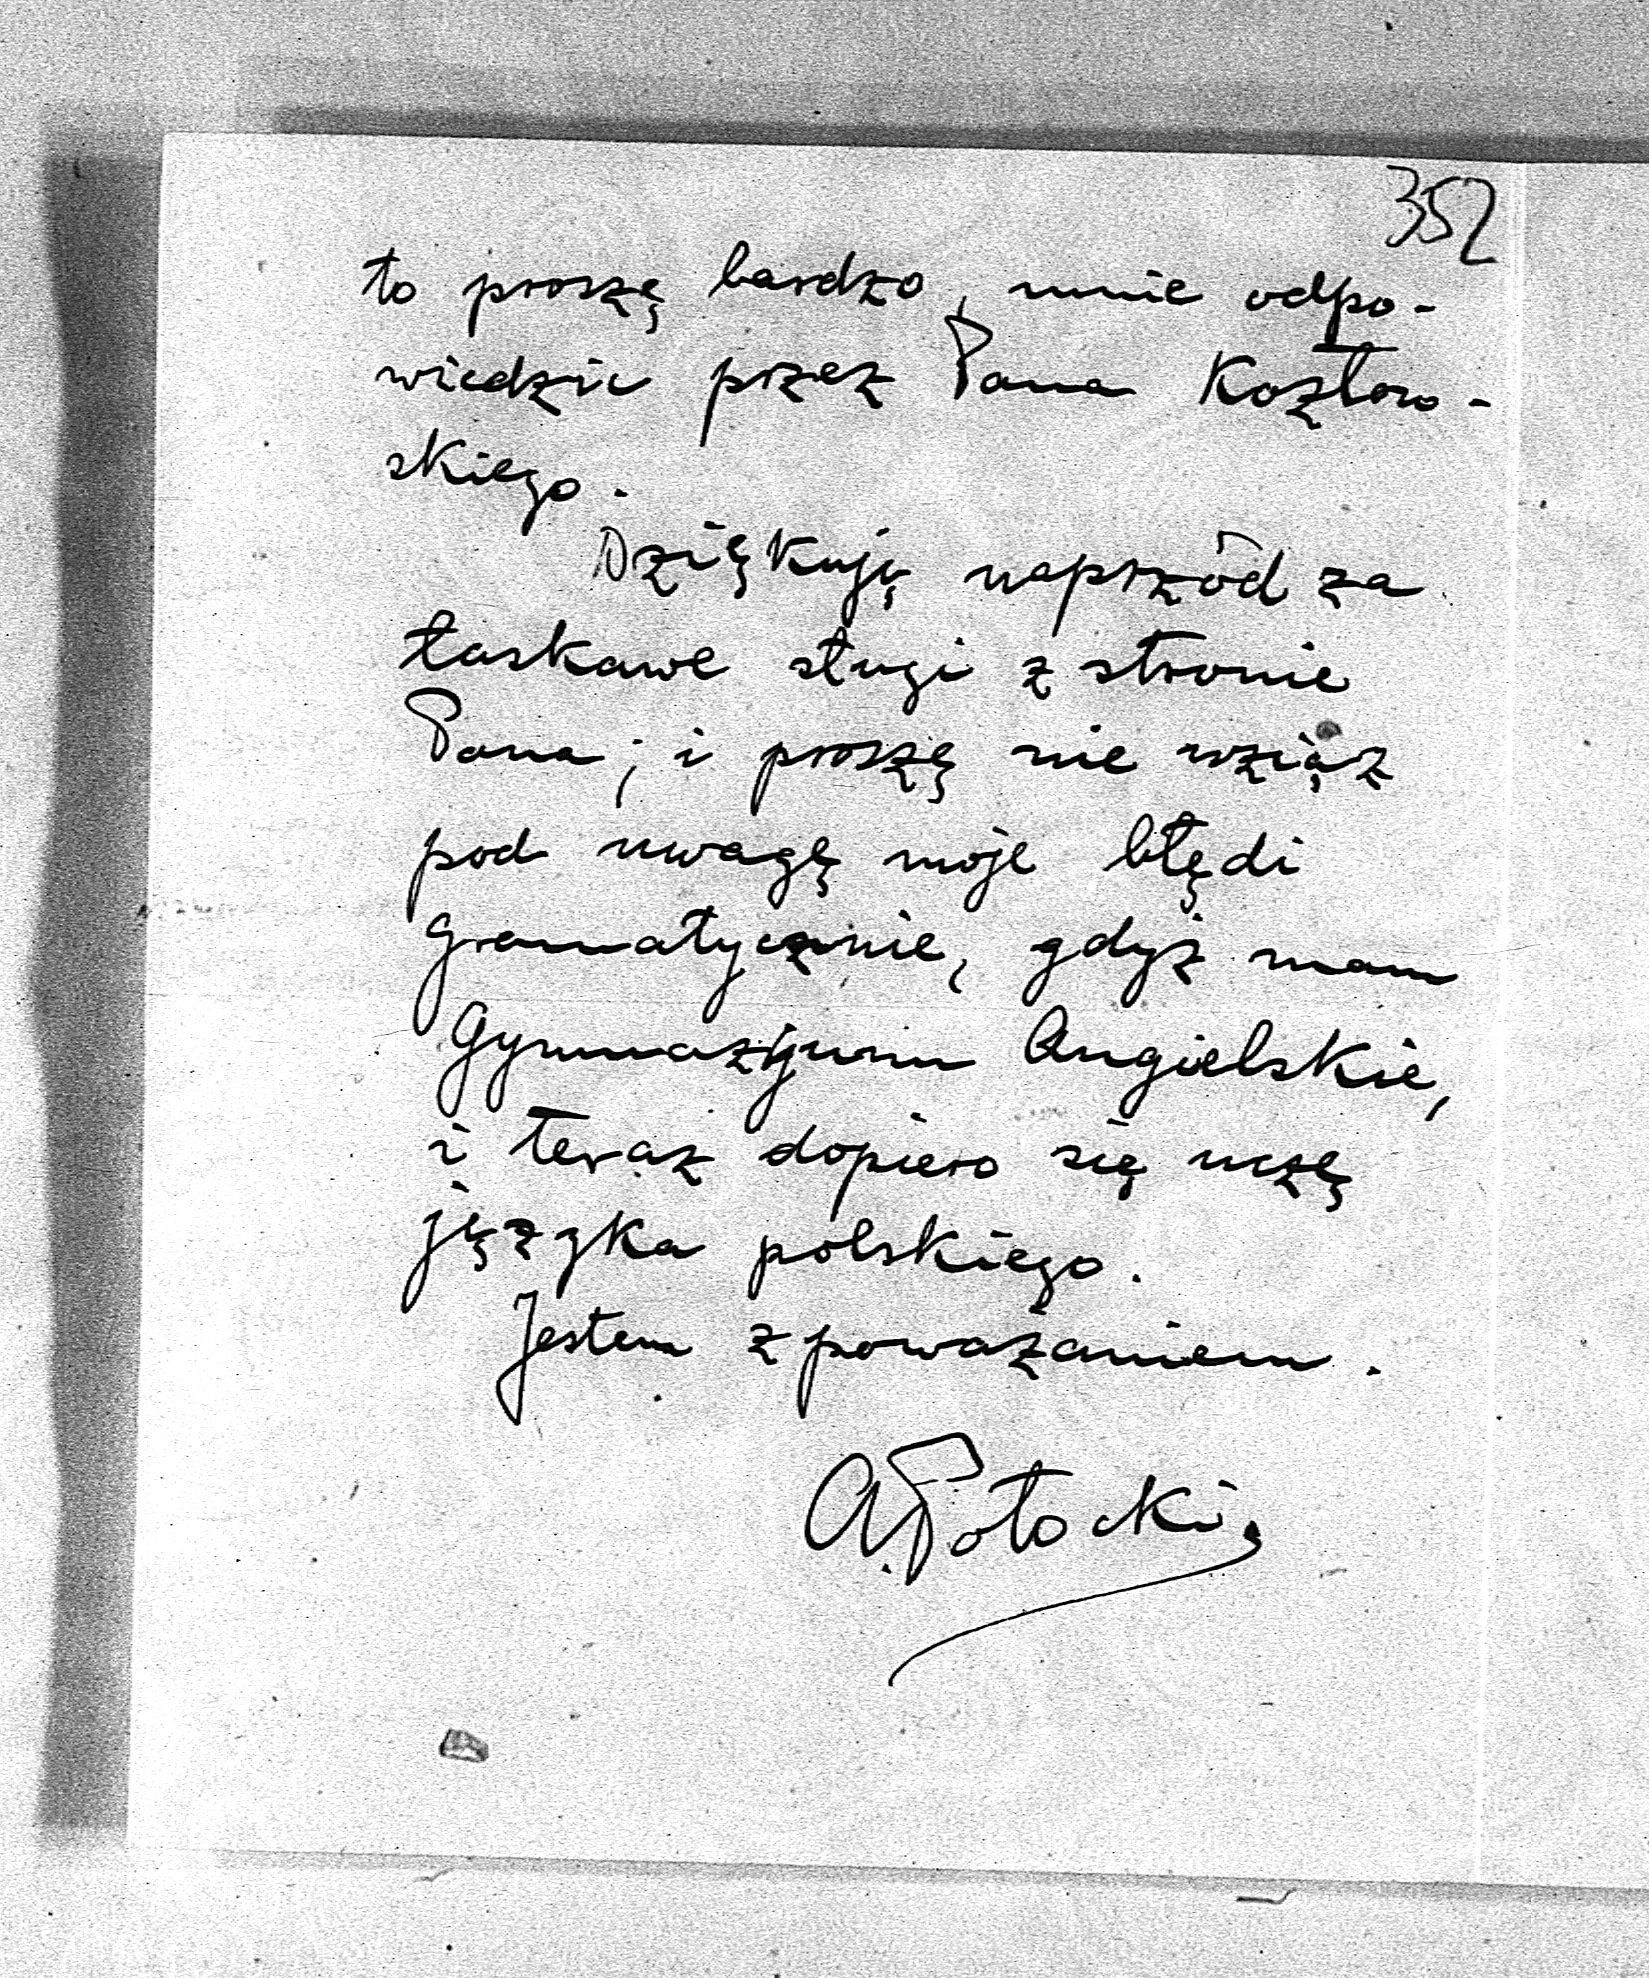 352
to proszę bardzo, mnie odpo-
wiedzic przez Pana Kozłow-
skiego.
Dziękuję naprzód za
łaskawe sługi z stronie
Pana; i proszę nie wziąz
pod uwagę moje błędi
gramatycznie, gdyż mam
Gymnazyum Angielskie,
i teraz dopiero się uczę
języka polskiego.
Jestem z powazaniem.
A. Potocki